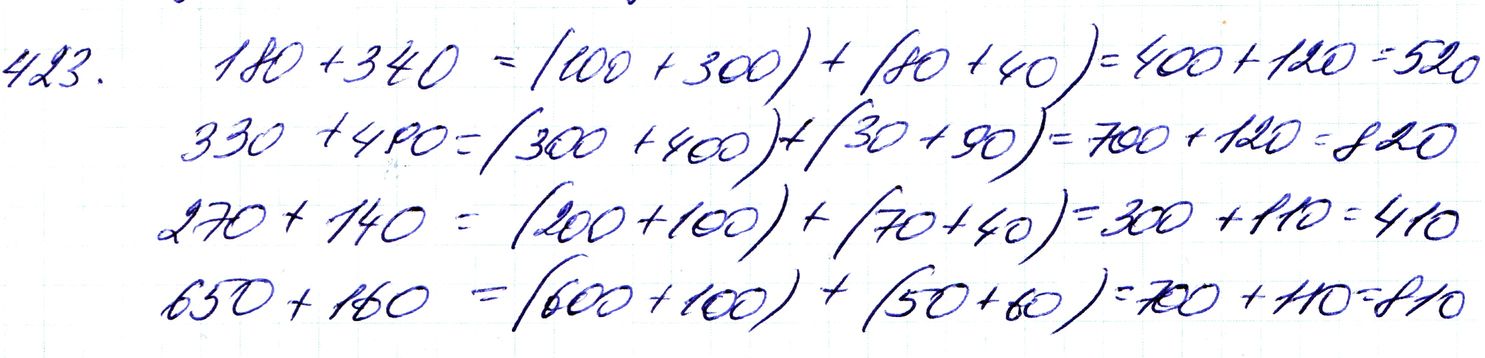 423. 180 + 340 = (100 + 300) + (80 + 40) = 400 + 120 = 520
330 + 490 = (300 + 400) + (30 + 90) = 700 + 120 = 820
270 + 140 = (200 + 100) + (70 + 40) = 300 + 110 = 410
650 + 160 = (600 + 100) + (50 + 60) = 700 + 110 = 810